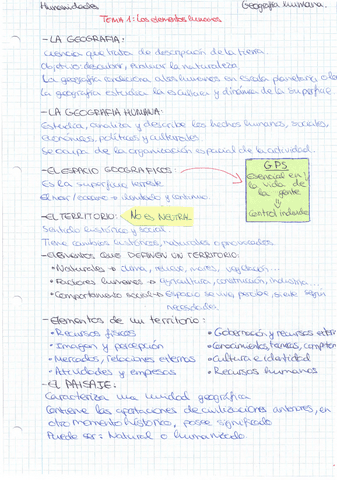 Humanidades
Geografía humana.
TEMA 1: Los elementos humanos
-LA GEOGRAFIA:
Ciencia que trata de descripción de la tierra
Objetivo: descubrir, Analizar la naturaleza.
La geografía relaciona al ser humano en escala planetaria o
la geografía estudia la estructura y dinámica de la superficie
-LA GEOGRAFIA HUMANA:
Estudia, analiza y describe los hechos humanos, sociales,
económicos, políticos y culturales.
Se ocupa de la organización espacial de la actividad.
-EL ESPACIO GEOGRAFICO:
Es la superficie terrestre
continuo.
GPS
esencial en
la vida de
la gente
y
control
-EL TERRITORIO: NO ES NEUTRAL
Sentido histórico y social.
Tiene cambios históricos, naturales o provocados.
-ELEMENTOS QUE DEFINEN UN TERRITORIO:
• Naturales → clima, relieve, mares, vegetación...
• Factores humanos → agricultura, construcción, industria
• Comportamiento social → Espacio se vive, percibe, siente según
necesidades.
-Elementos de un territorio:
• Recursos físicos
• Imagen y percepción
• Mercados, relaciones externas
• Actividades y empresas
• Gobernación y recursos
• Conocimientos, tareas,
• Cultura e identidad
• Recursos humanos
-EL PAISAJE:
Caracteriza una unidad geográfica
Contiene las aportaciones de civilizaciones anteriores, en
otro momento histórico, posee significado
Puede ser: Natural o humanizado.